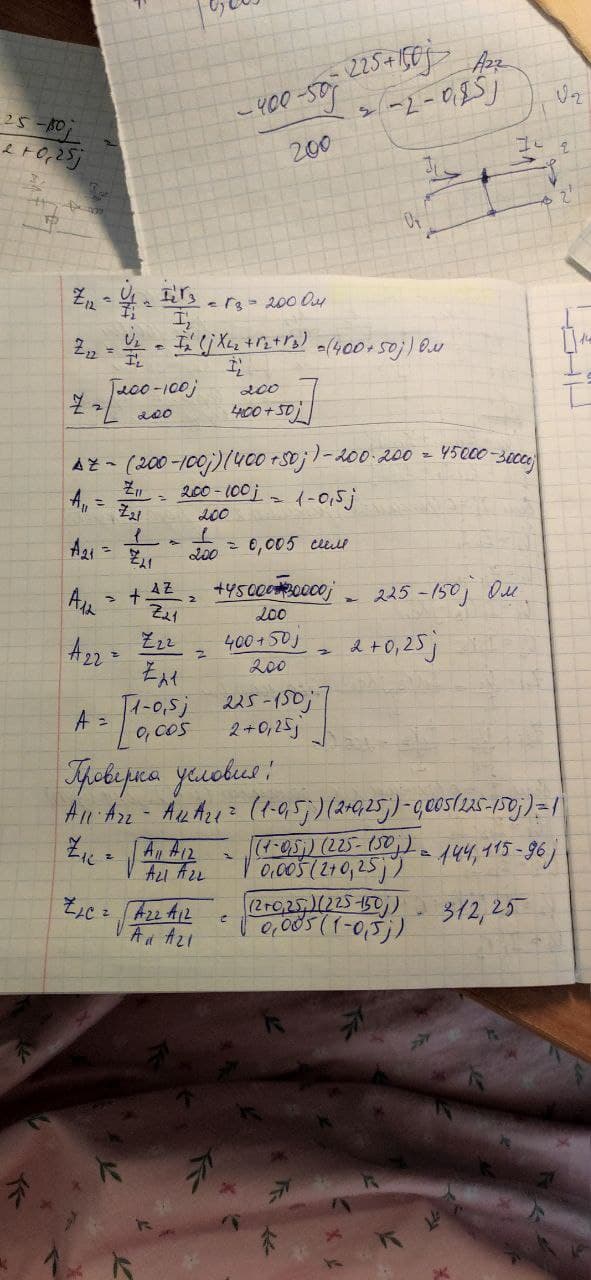 -225+150j
A₂₂
(-400-50j)/200 = -2-0,25j
25-150j
2+0,25j =
U₂
I₁
I₂
2
U₁
2'
Z₁₂ = U̇₁/İ₂' = İ₂'r₃/İ₂' = r₃ = 200 Ом
Z₂₂ = U̇₂/İ₂' = İ₂'(jX_L₂+r₂+r₃)/İ₂' = (400+50j) Ом
Z = [200-100j 200
200 400+50j]
ΔZ = (200-100j)(400+50j)-200·200 = 45000-30000j
A₁₁ = Z₁₁/Z₂₁ = (200-100j)/200 = 1-0,5j
A₂₁ = 1/Z₂₁ = 1/200 = 0,005 сим
A₁₂ = +ΔZ/Z₂₁ = (+45000-30000j)/200 = 225-150j Ом
A₂₂ = Z₂₂/Z₂₁ = (400+50j)/200 = 2+0,25j
A = [1-0,5j 225-150j
0,005 2+0,25j]
Проверка условия:
A₁₁·A₂₂ - A₁₂A₂₁ = (1-0,5j)(2+0,25j)-0,005(225-150j)=1
Z₁c = √(A₁₁A₁₂/A₂₁A₂₂) = √((1-0,5j)(225-150j)/0,005(2+0,25j)) = 144,115-96j
Z₂c = √(A₂₂A₁₂/A₁₁A₂₁) = √((2+0,25j)(225-150j)/0,005(1-0,5j)) - 312,25